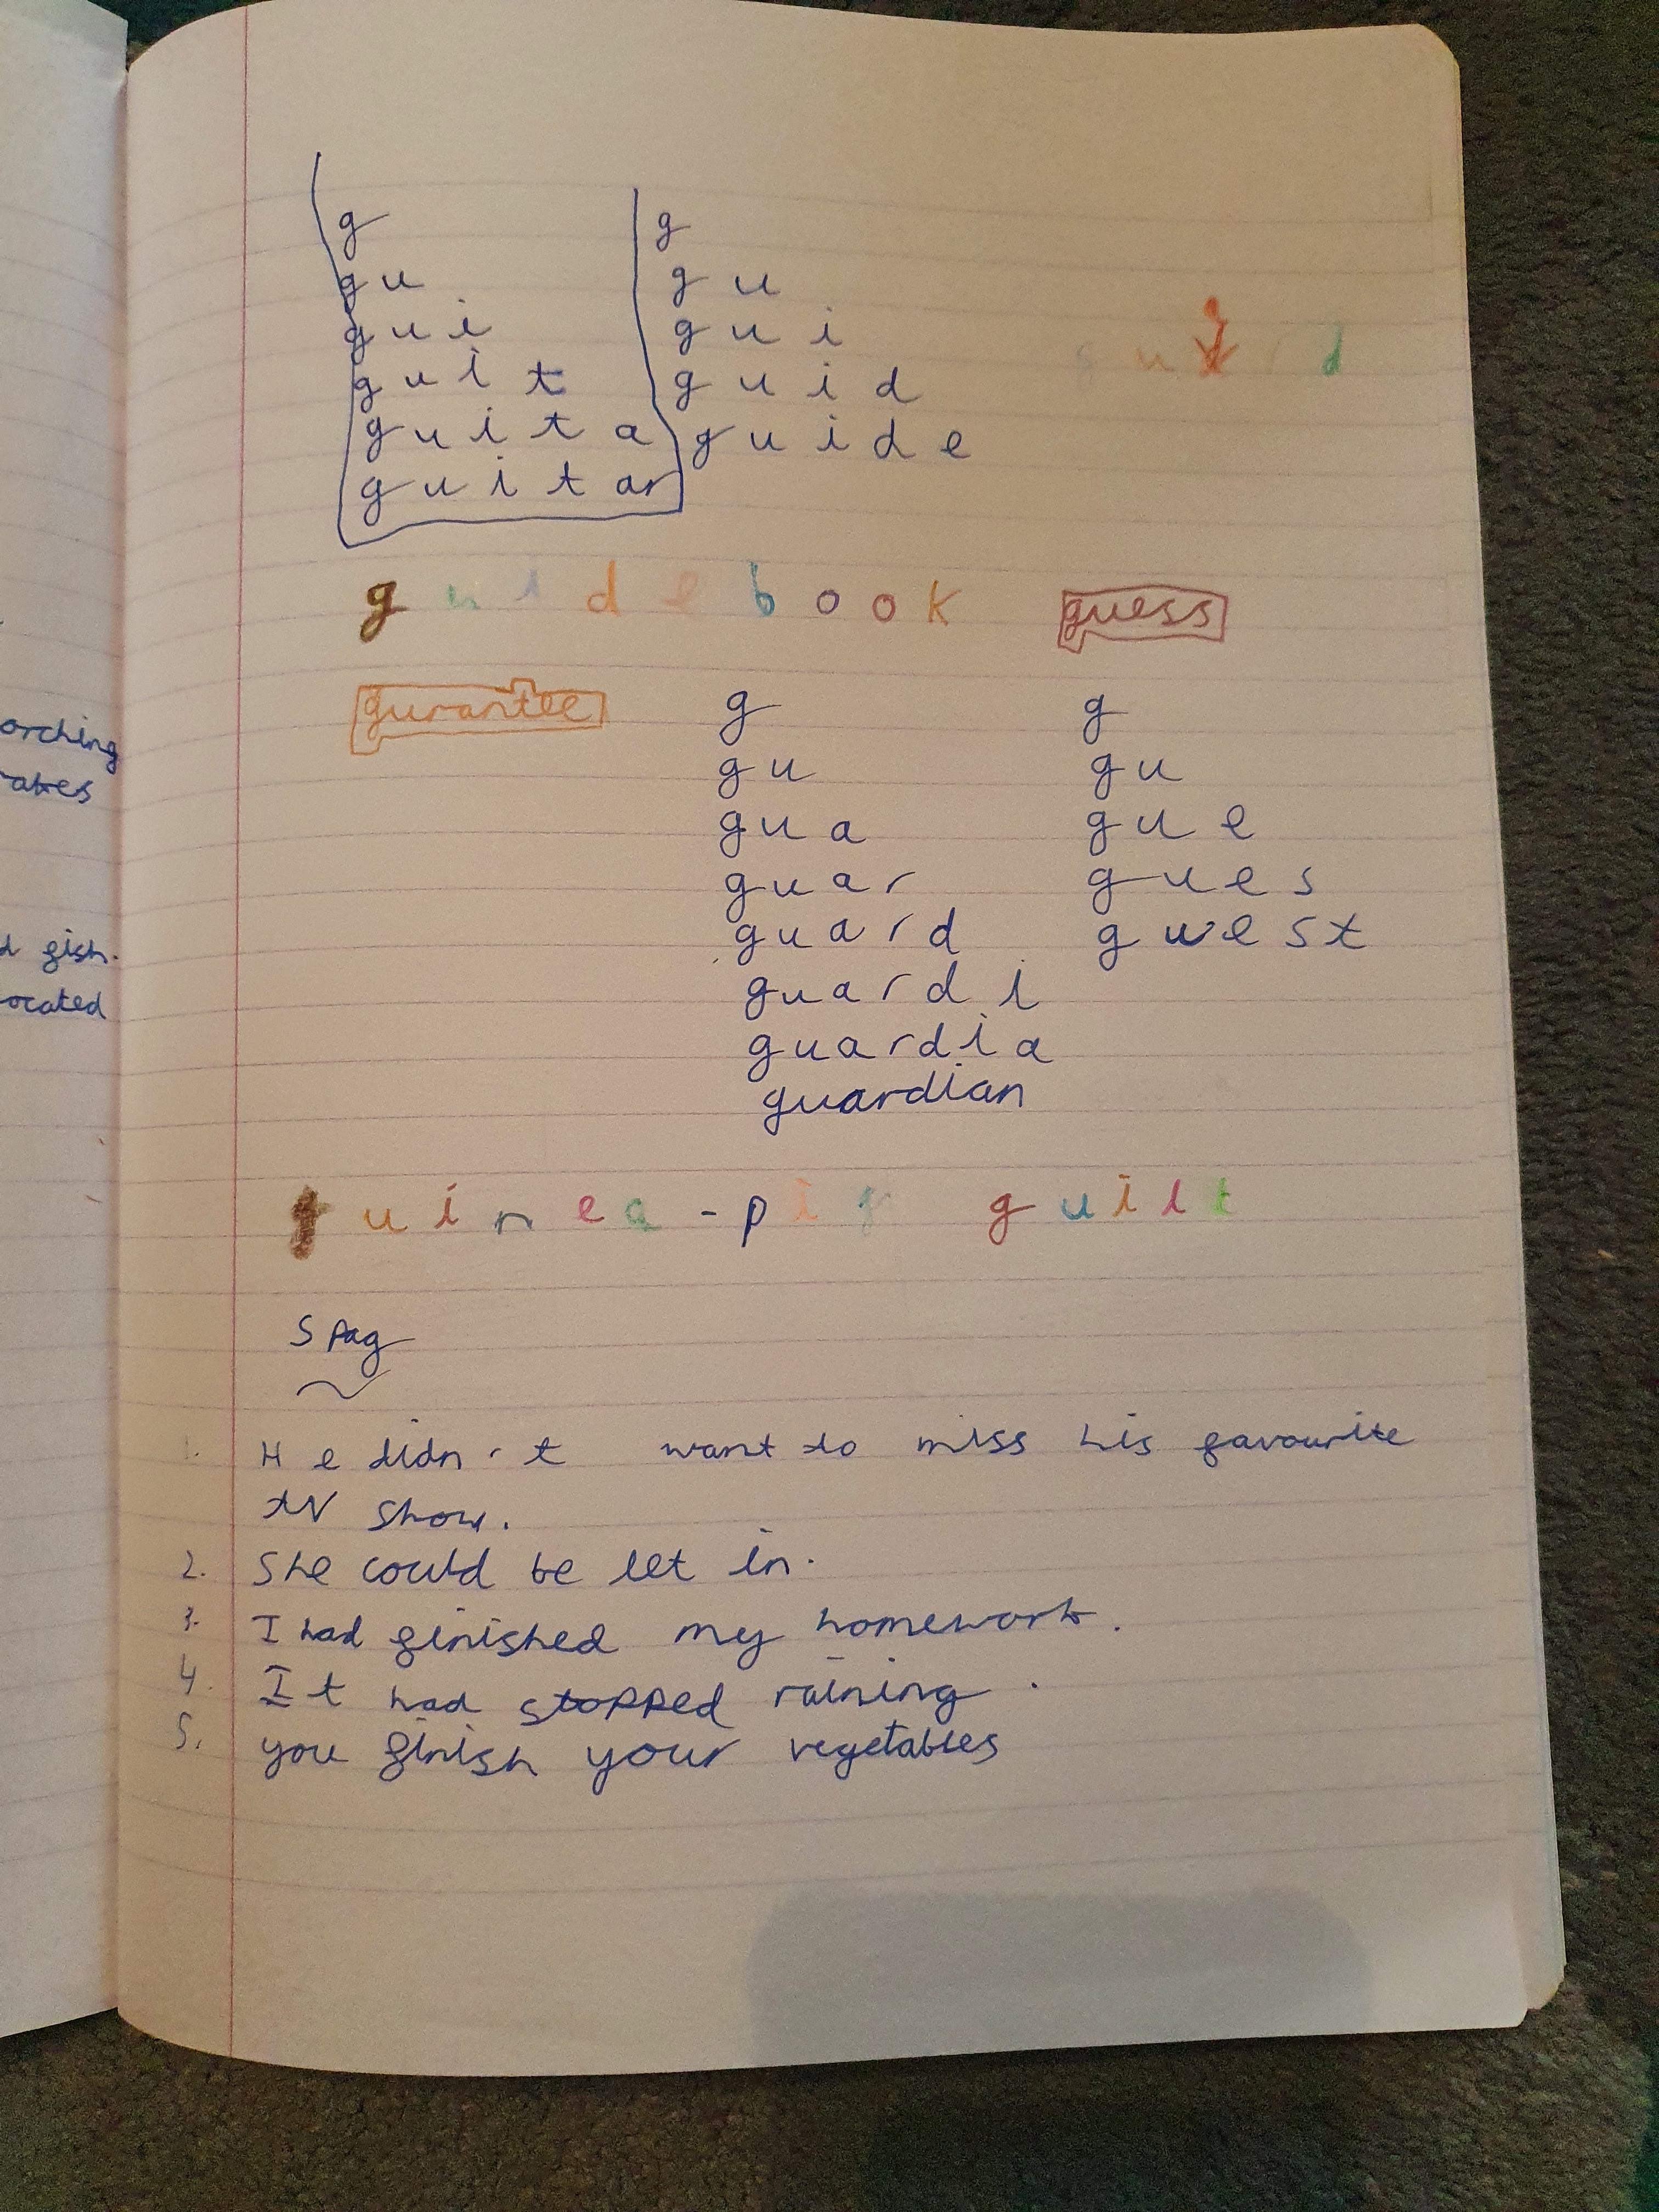 orching
ates
d fish.
ocated
g
gu
gui
guit
guita
guitar
g
gu
gui
guid
guide
guard
guidebook
guess
gurantee
g
gu
gua
guar
guard
guardi
guardia
guardian
g
gu
gue
gues
guest
guinea-pig guilt
Spag
1. He didn't want to miss his favourite
tV show.
2. She could be let in.
3. I had finished my homework.
4. It had stopped raining.
5. you finish your vegetables